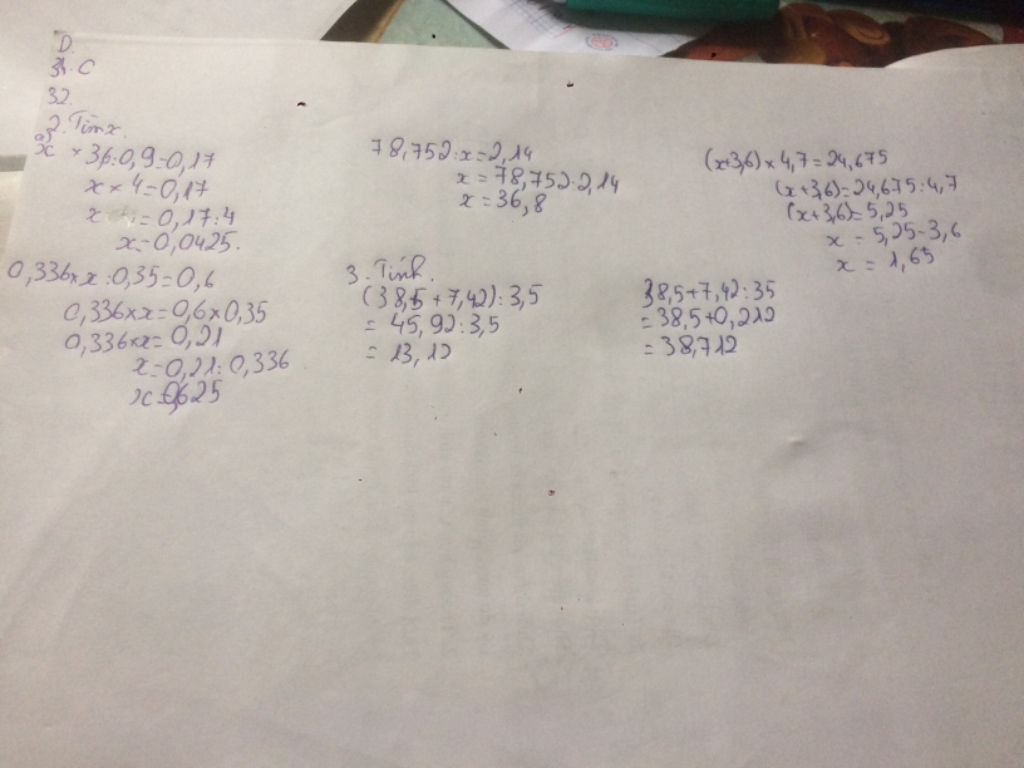 D.
31. C
32.
2. Tìm x.
a) x × 3,6:0,9=0,17
x × 4=0,17
x = 0,17:4
x=0,0425.
78,752:x=2,14
x=78,752:2,14
x=36,8
(x+3,6) × 4,7=24,675
(x+3,6)=24,675:4,7
(x+3,6)=5,25
x = 5,25-3,6
x = 1,65
0,336×x:0,35=0,6
0,336×x=0,6×0,35
0,336×x=0,21
x=0,21:0,336
x=0,625
3. Tính.
(38,5+7,42):3,5
= 45,92:3,5
= 13,12
38,5+7,42:35
=38,5+0,212
=38,712